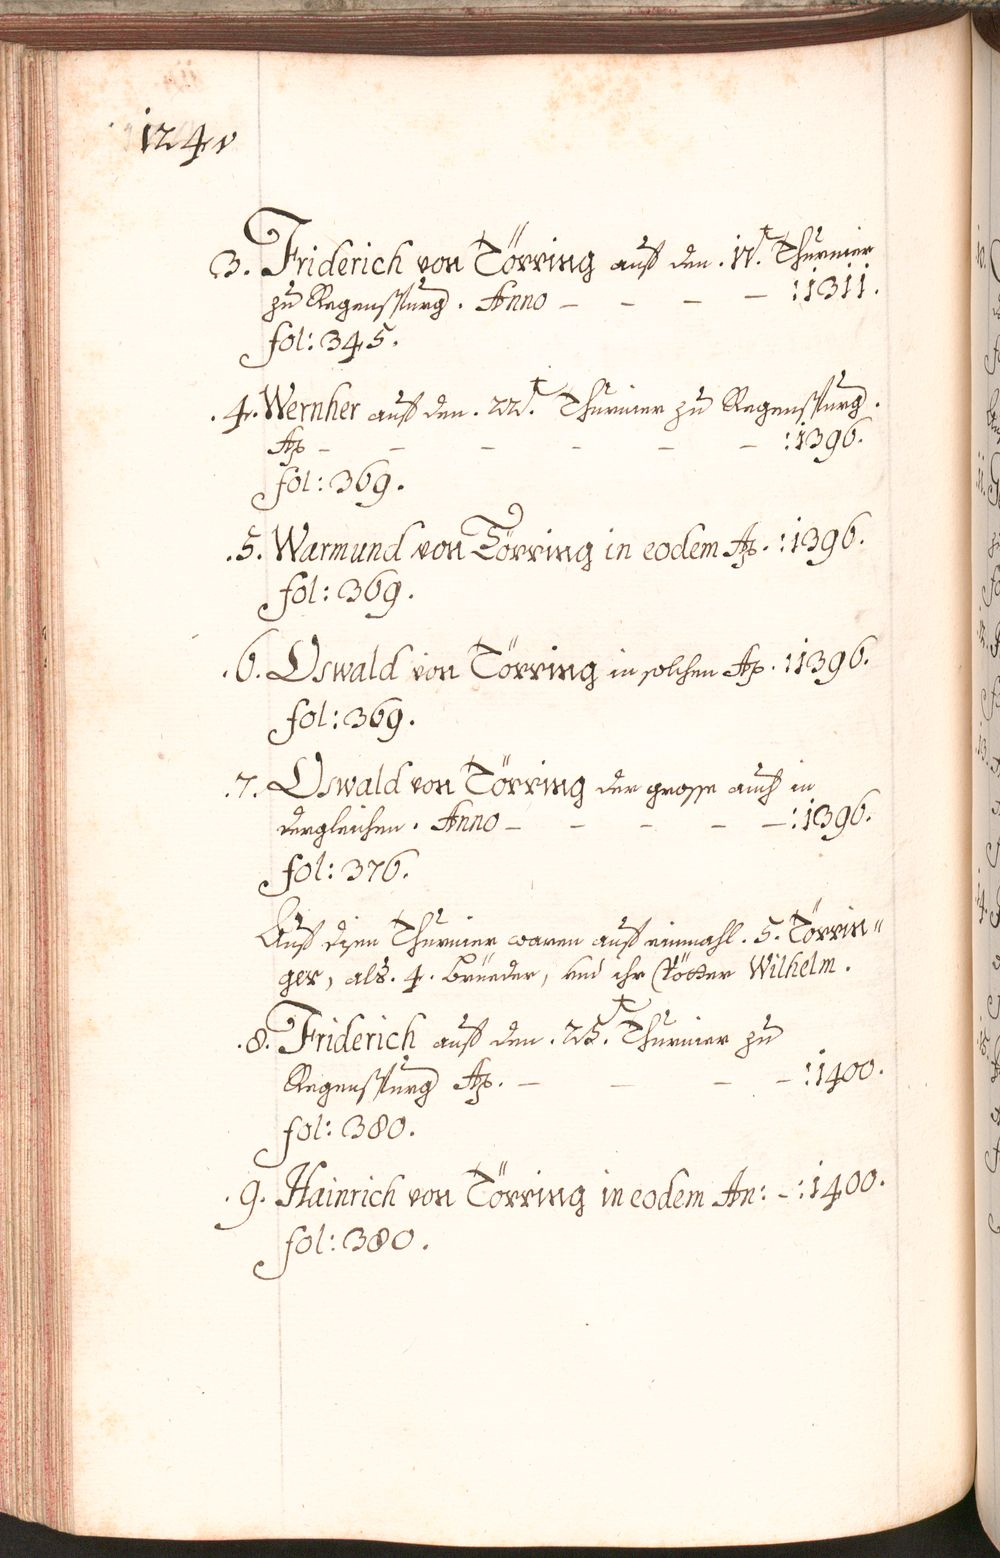 124v
3. Friderich von Törring auß den .17.t Thurnier
zu Regenspurg . Anno – – – – :1311.
fol: 345.
.4. Wernher auß den .22.t Thurnier zu Regenspurg .
Ao – – – – – – :1396.
fol: 369.
.5. Warmund von Törring in eodem Ao. :1396.
fol: 369.
.6. Oswald von Törring in solchen Ao. :1396.
fol: 369.
.7. Oswald von Törring der grosse auch in
dergleichen . Anno – – – – – :1396.
fol: 376.
Auß disen Thurnier waren auß einmahl . 5. Törrin"
ger, als . 4. Brüeder, und ihr Vötter Wilhelm .
.8. Friderich auß den .23.t Thurnier zu
Regenspurg Ao. – – – – :1400.
fol: 380.
.9. Hainrich von Törring in eodem An: – :1400.
fol: 380.